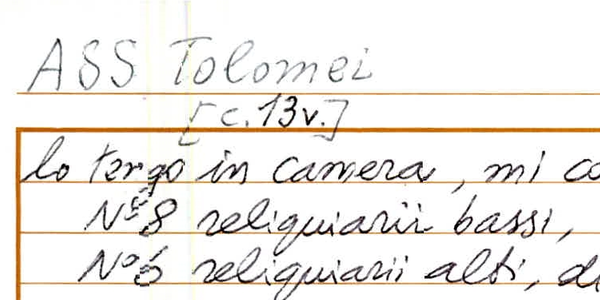 ASS Tolomei
[c. 13v.]
lo tengo in camera, mi
N° 8 reliquiarii bassi,
N° 6 reliquiarii alti,